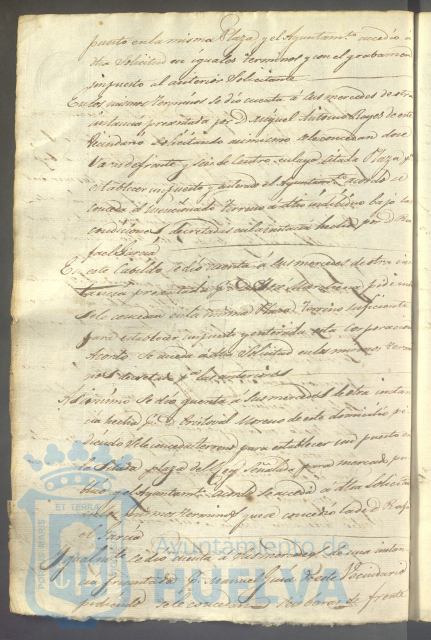 puesto en la misma Plaza, y el Ayuntamto. accedió á
dha Solicitud en iguales terminos y con el grabamen
impuesto al anterior Solicitante
En los mismos terminos se dió cuenta á Sus mercedes de otra
instancia presentada por D. Miguel Antonio Reyes de este
Vecindario solicitando asimismo se le concedan doce
Varas de frente y seis de centro en la ya citada Plaza pa.
establecer un puesto y enterado el Ayuntamto. acordó se
conceda el mencionado terreno á dho individuo bajo las
condiciones decretadas en la instancia hecha por D. Ra
fael Garcia
En este Cabildo se dió cuenta á Sus mercedes de otra ins
tancia presentada pr. D. Jose pidiendo
se le concedan en la misma Plaza terreno suficiente
para establecer un puesto y enterada esta Corporacion
Acordó se acceda á dha Solicitud en los mismos termi
nos decretados pa. las anteriores
Asimismo se dió cuenta á Sus mercedes de otra instan
cia hecha pr. D. Cristoval Moreno de este domicilio pi
diendo se le conceda terreno para establecer un puesto en
la citada plaza del Rey señalada para mercado pu
blico y el Ayuntamto. acordó se acceda á dha solicitud
en los mismos terminos que se concedió la de D. Rafa
el Garcia
Igualmte. se dió cuenta á Sus mercedes de una instan
cia presentada pr. Manuel de este Vecindario
pidiendo se le concedan seis baras de frente
ET TERRAE
Ayuntamiento de
HUELVA